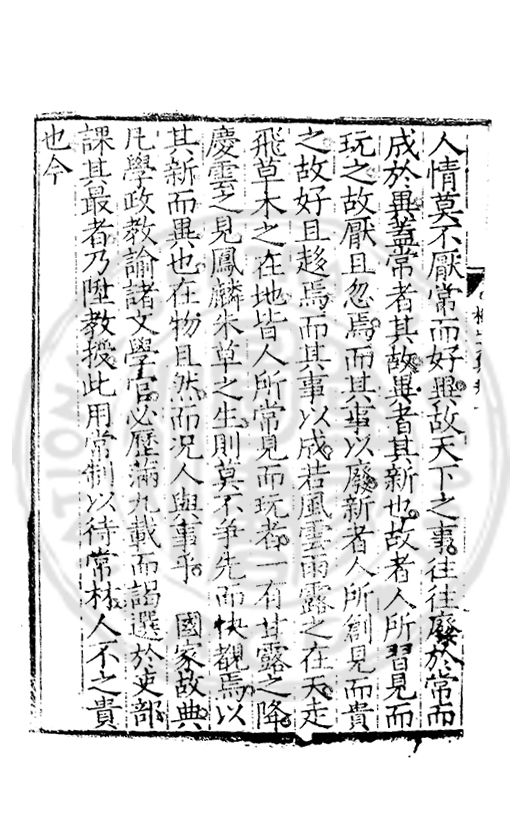 人情莫不厭常而好異故天下之事往往廢於常而
成於異蓋常者其故異者其新也故者人所習見而
玩之故厭且忽焉而其事以廢新者人所創見而貴
之故好且趍焉而其事以成若風雲雨露之在天走
飛草木之在地皆人所常見而玩者一有甘露之降
慶雲之見鳳麟朱草之生則莫不爭先而快覩焉以
其新而異也在物且然而况人與事乎　國家故典
凡學政教諭諸文學官必歷滿九載而謁選於吏部
課其最者乃陞教授此用常制以待常材人不之貴
也今